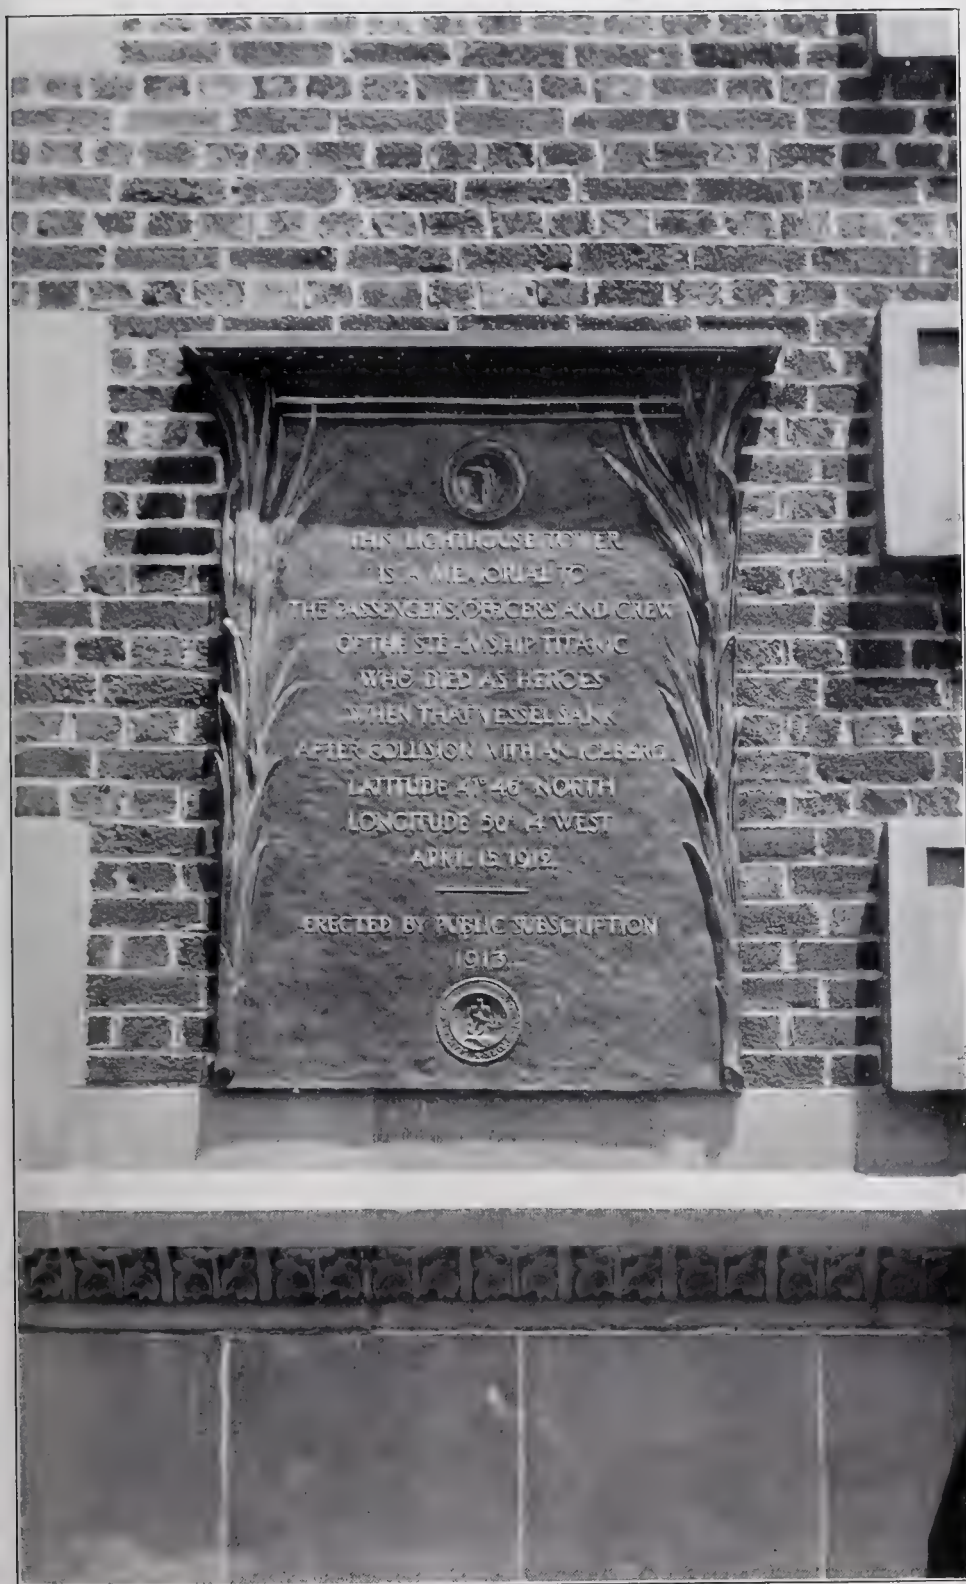 THIS LIGHTHOUSE TOWER
IS A MEMORIAL TO
THE PASSENGERS, OFFICERS AND CREW
OF THE STEAMSHIP TITANIC
WHO DIED AS HEROES
WHEN THAT VESSEL SANK
AFTER COLLISION WITH AN ICEBERG
LATITUDE 41° 46' NORTH
LONGITUDE 50° 14' WEST
APRIL 15, 1912
ERECTED BY PUBLIC SUBSCRIPTION
1913